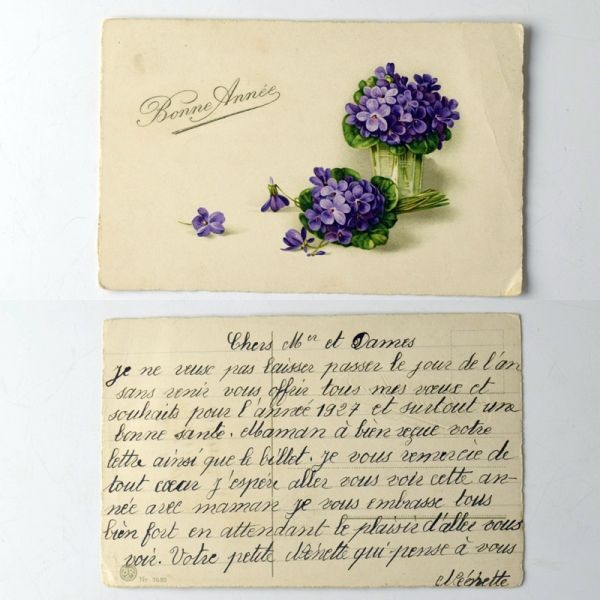 Bonne Année
Chers Mer et Dames
je ne veux pas laisser passer le jour de l'an
sans venir vous offrir tous mes vœux et
souhaits pour l'année 1927 et surtout une
bonne santé. Maman à bien reçue votre
lettre ainsi que le billet. je vous remercie de
tout cœur j'espére aller vous voir cette an-
née avec maman je vous embrasse tous
bien fort en attendant le plaisir d'aller vous
voir. Votre petite qui pense à vous
Nr. 1680